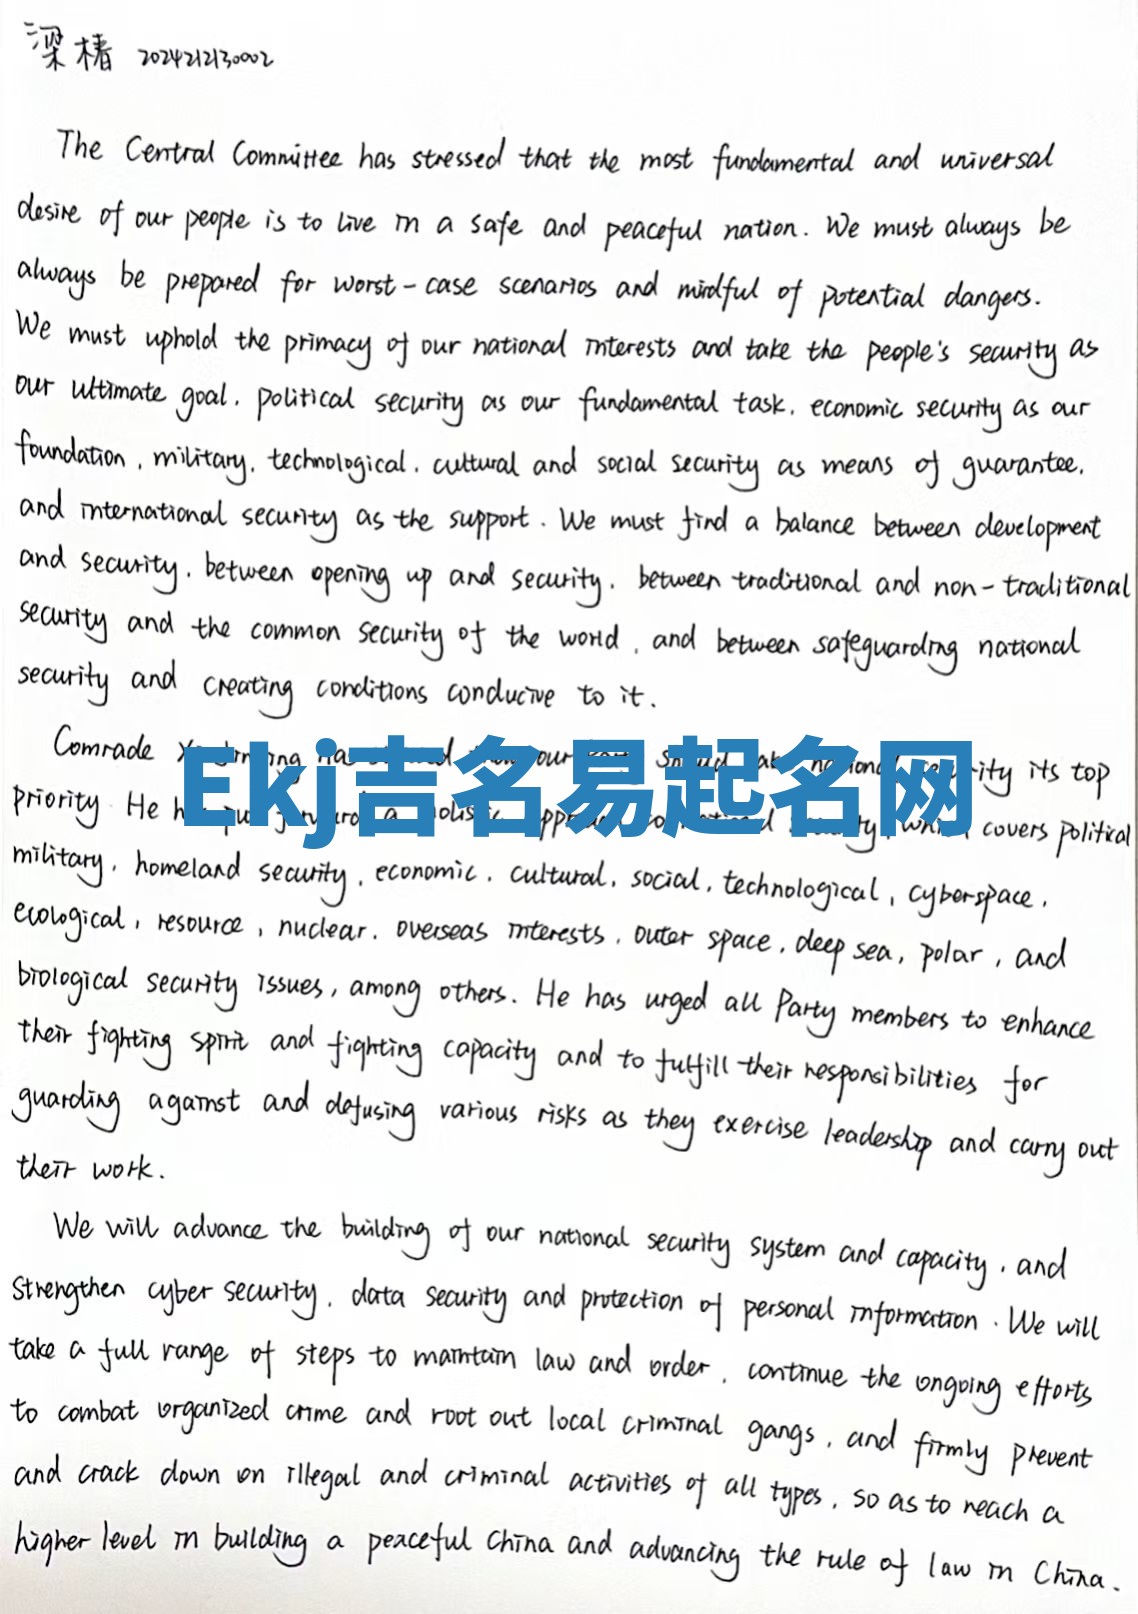 梁椿 2024212130002
The Central Committee has stressed that the most fundamental and universal
desire of our people is to live in a safe and peaceful nation. We must always be
always be prepared for worst-case scenarios and mindful of potential dangers.
We must uphold the primacy of our national interests and take the people's security as
our ultimate goal, political security as our fundamental task, economic security as our
foundation, military, technological, cultural and social security as means of guarantee,
and international security as the support. We must find a balance between development
and security, between opening up and security, between traditional and non-traditional
security and the common security of the world, and between safeguarding national
security and creating conditions conducive to it.
Comrade our its top
Ekj吉名易起名网
priority. He covers political
military, homeland security, economic, cultural, social, technological, cyberspace,
ecological, resource, nuclear, overseas interests, outer space, deep sea, polar, and
biological security issues, among others. He has urged all Party members to enhance
their fighting spirit and fighting capacity and to fulfill their responsibilities for
guarding against and defusing various risks as they exercise leadership and carry out
their work.
We will advance the building of our national security system and capacity, and
strengthen cyber security, data security and protection of personal information. We will
take a full range of steps to maintain law and order, continue the ongoing efforts
to combat organized crime and root out local criminal gangs, and firmly prevent
and crack down on illegal and criminal activities of all types, so as to reach a
higher level in building a peaceful China and advancing the rule of law in China.